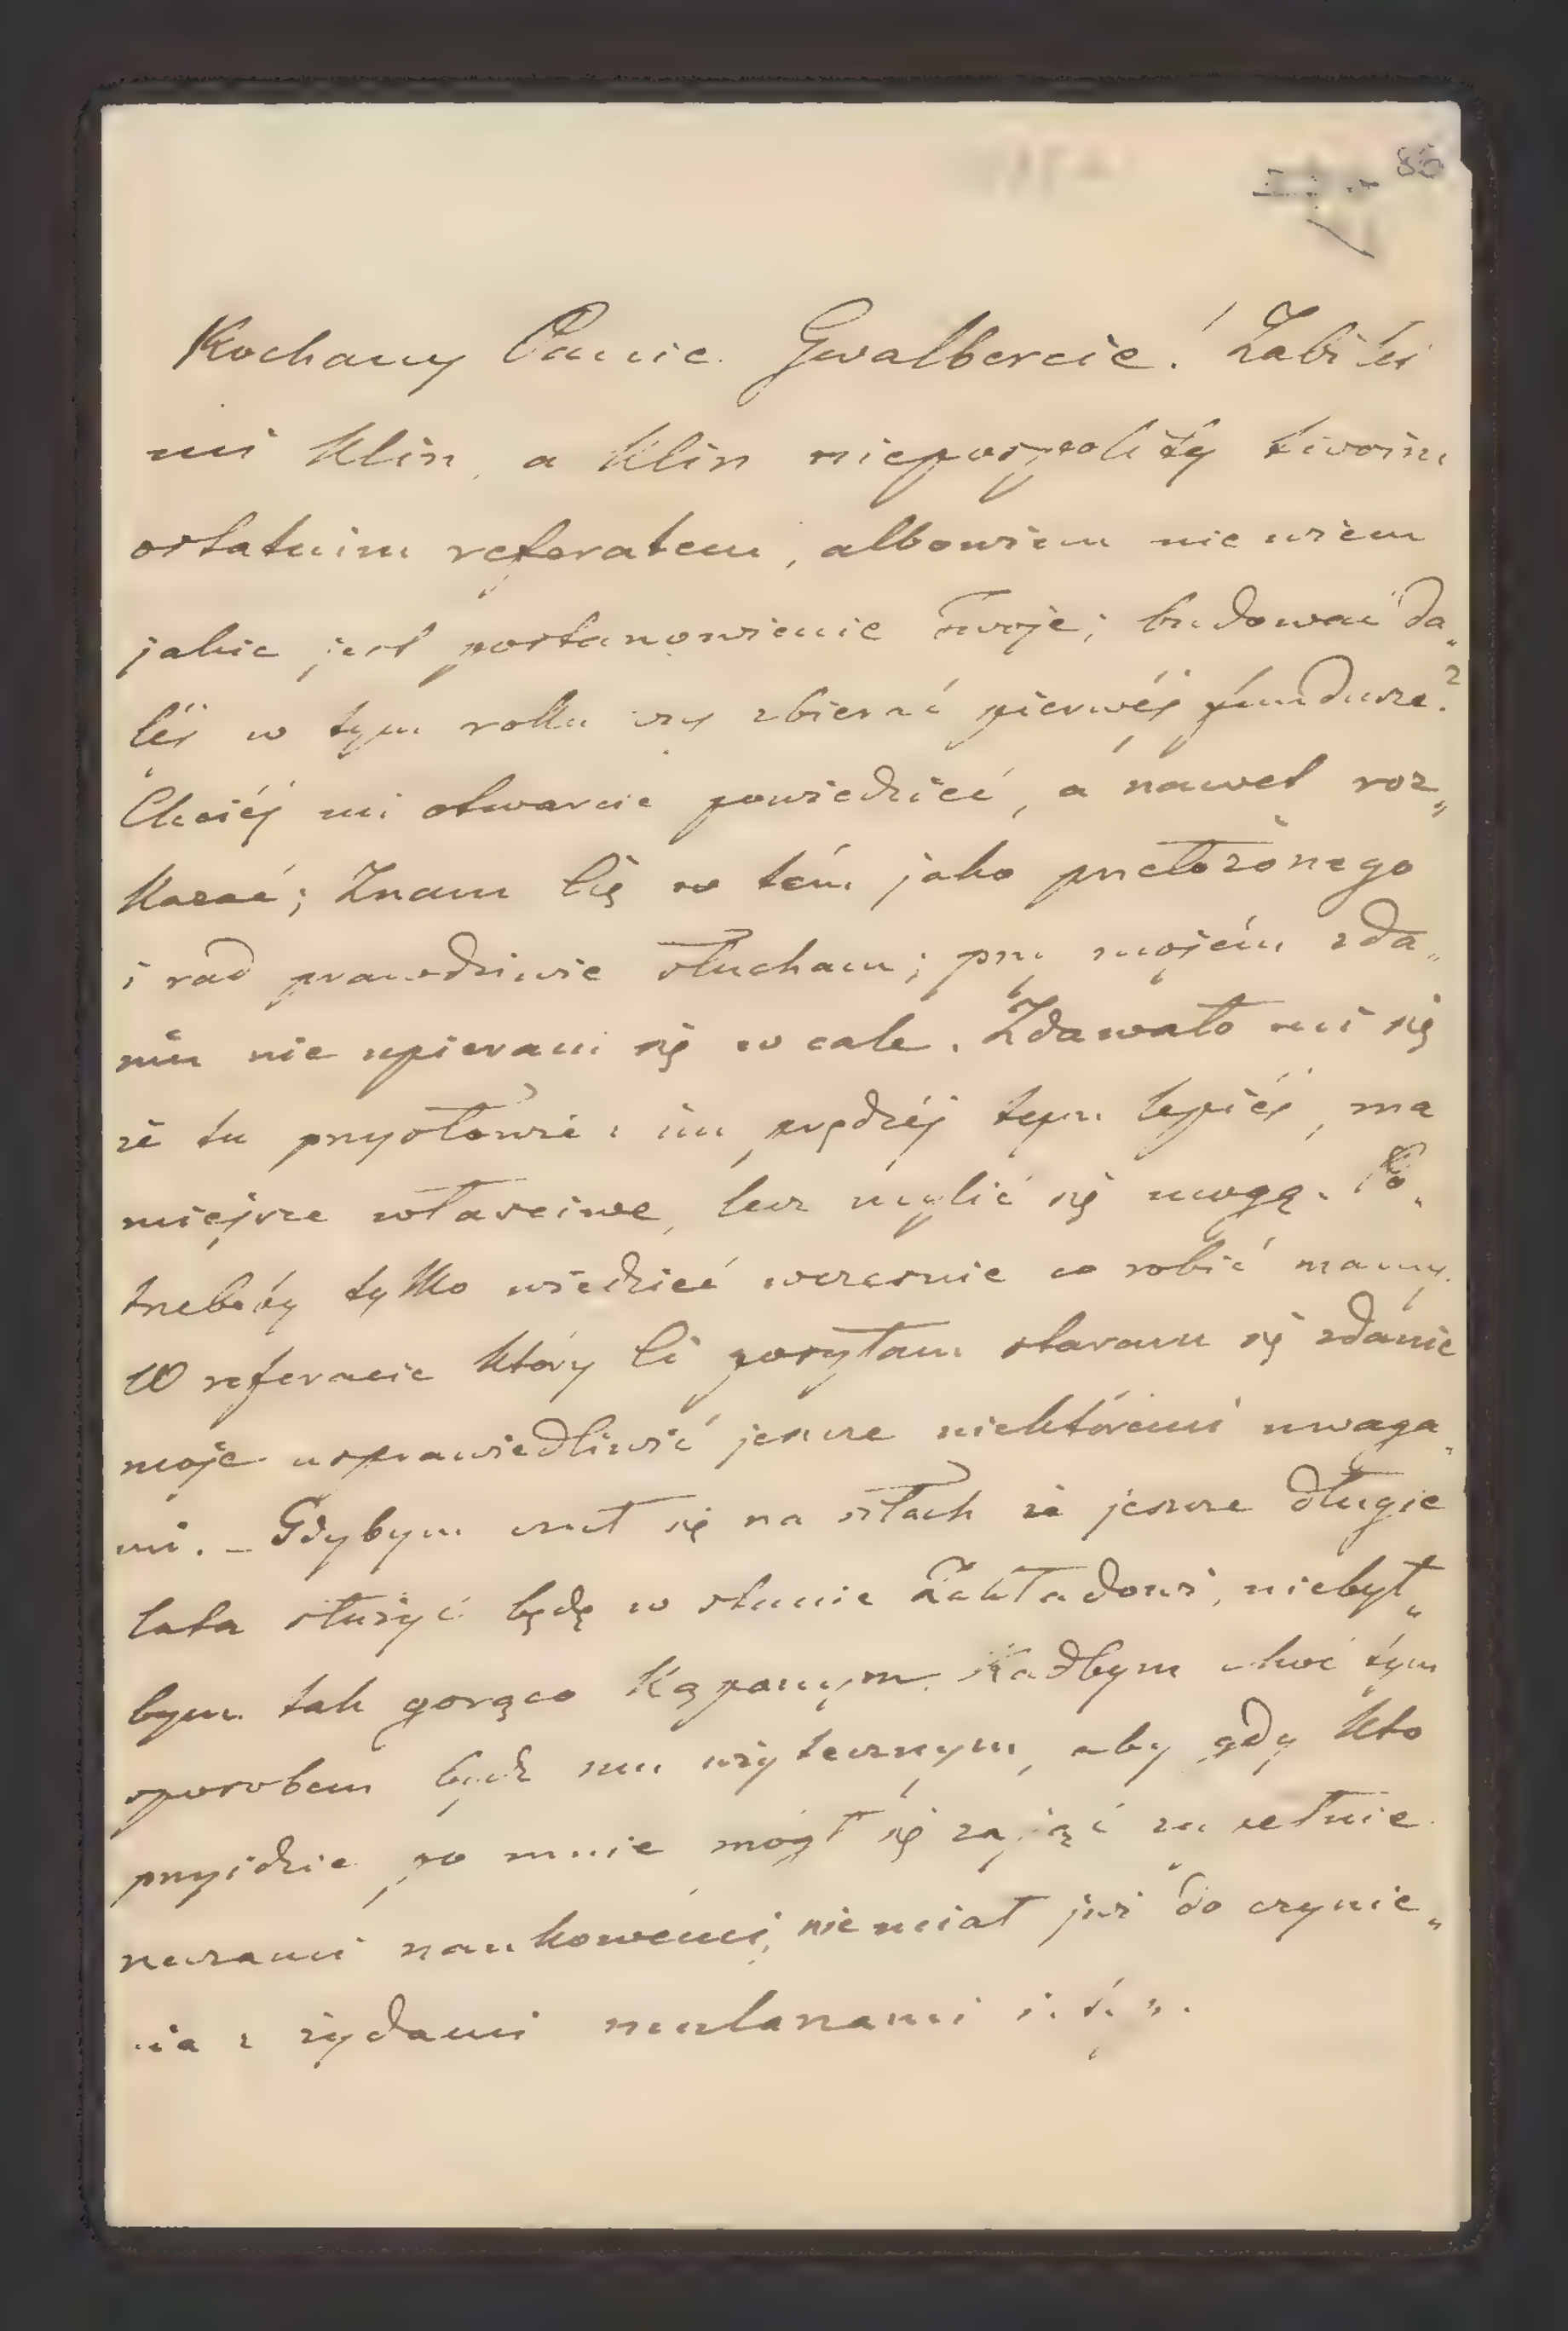 85
Kochany Panie Gwalbercie! Zabiłeś
mi klin, a klin niepospolity twoim
ostatnim referatem, albowiem nie wiem
jakie jest postanowienie Twoje; budować da„
léj w tym roku czy zbierać pierwéj fundusze?
Chciéj mi otwarcie powiedzieć, a nawet roz„
kazać; Znam Cię w tém jako przełożonego
i rad prawdziwie słucham; przy mojém zda„
niu nie upieram się w cale. Zdawało mi się
że tu przysłowie: im prędzéj tym lepiéj, ma
miejsce właściwe, lecz mylić się mogę. Po„
trzebaby tylko wiedzieć wcześnie co robić mamy.
W referacie który Ci posyłam staram się zdanie
moje usprawiedliwić jeszcze niektóremi uwaga„
mi. – Gdybym czuł się na siłach że jeszcze długie
lata służyć będę w stanie Zakładowi, niebył„
bym tak gorąco kąpanym. Radbym choć tym
sposobem być mu użytecznym, aby gdy kto
przyjdzie po mnie mógł się zająć zupełnie
rzeczami naukowémi, nie miał już do czynie„
nia z żydami mularzami i. t. p.